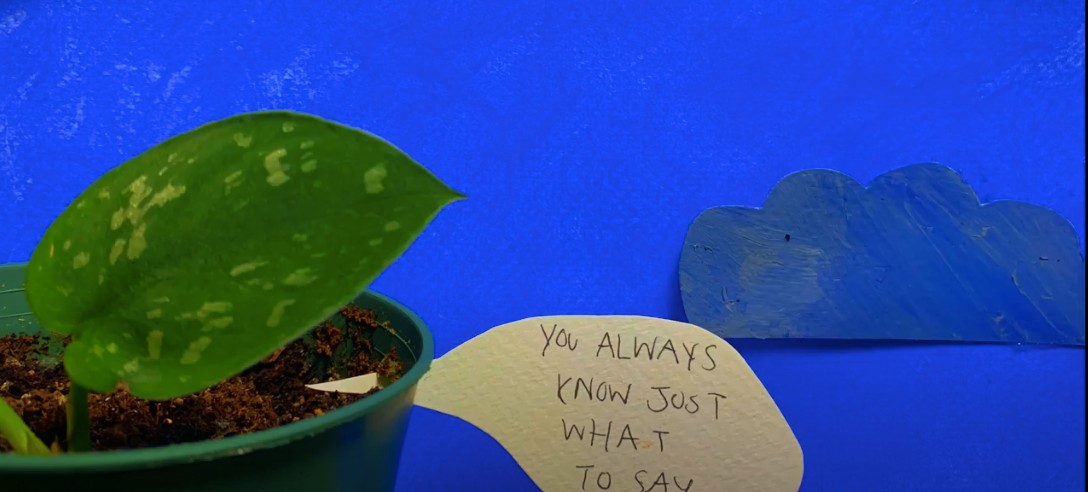 YOU ALWAYS
KNOW JUST
WHAT
TO SAY